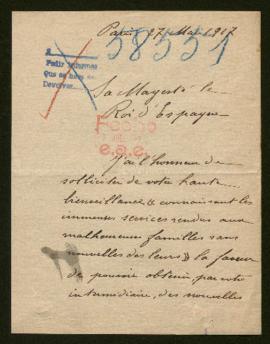 Paris 27 Mai 1917
58551
Pedir informes
Que se
Devolver
Sa Majesté le
Roi d'Espagne
J'ai l'honneur de
solliciter de votre haute
bienveillance (( connaissant les
immenses services rendus aux
malheureuses familles sans
nouvelles des leurs )) la faveur
de pouvoir obtenir, par votre
intermédiaire, des nouvelles